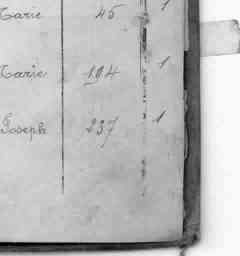 Marie 45 1
Marie 194 1
Joseph 237 1